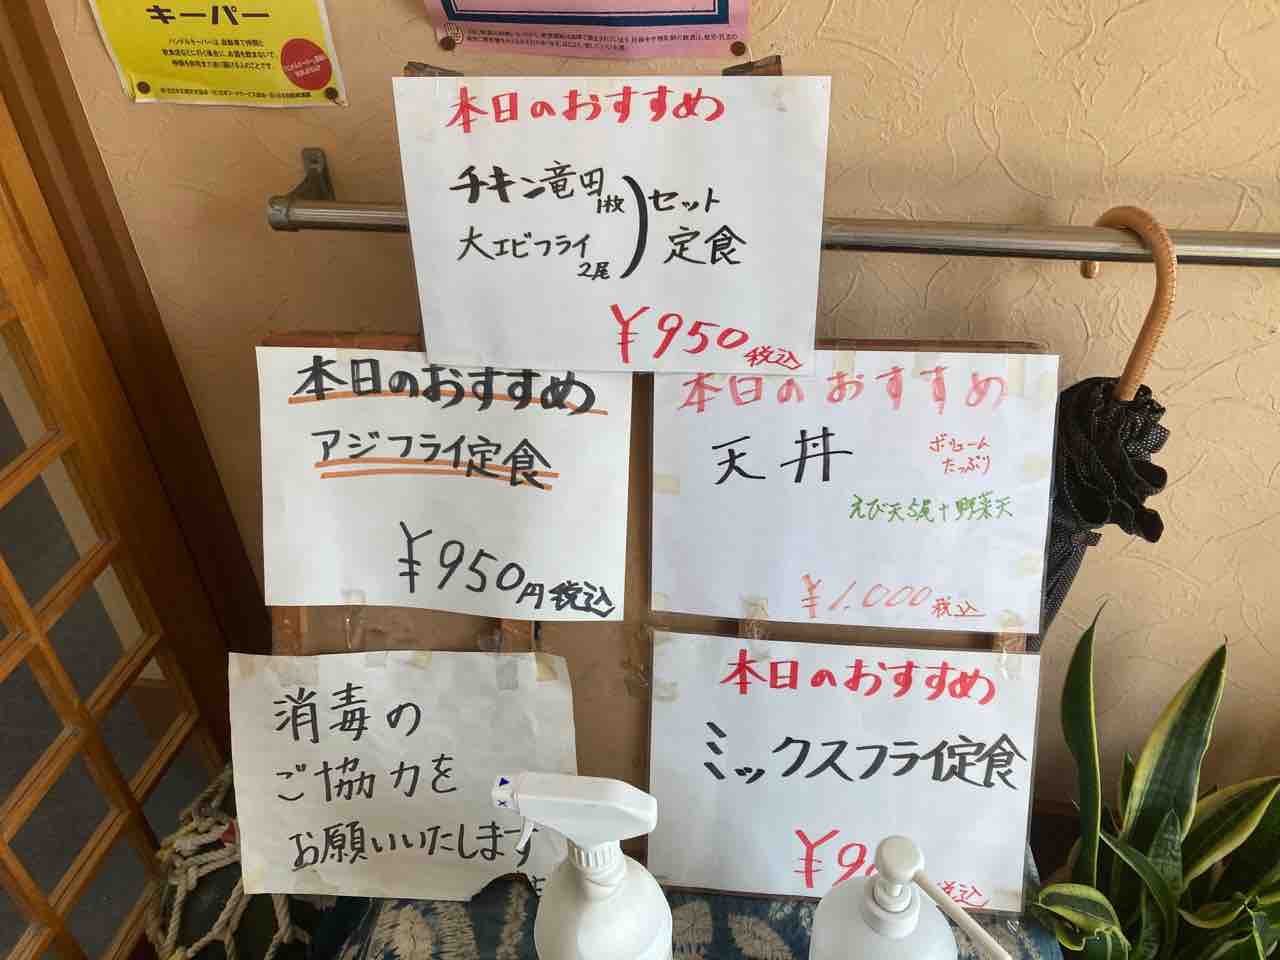 キーパー
本日のおすすめ
チキン竜田
1枚
大エビフライ
2尾
セット
定食
¥950税込
本日のおすすめ
アジフライ定食
¥950円税込
本日のおすすめ
天丼
ボリューム
たっぷり
えび天5尾+野菜天
¥1.000税込
消毒の
ご協力を
お願いいたします
本日のおすすめ
ミックスフライ定食